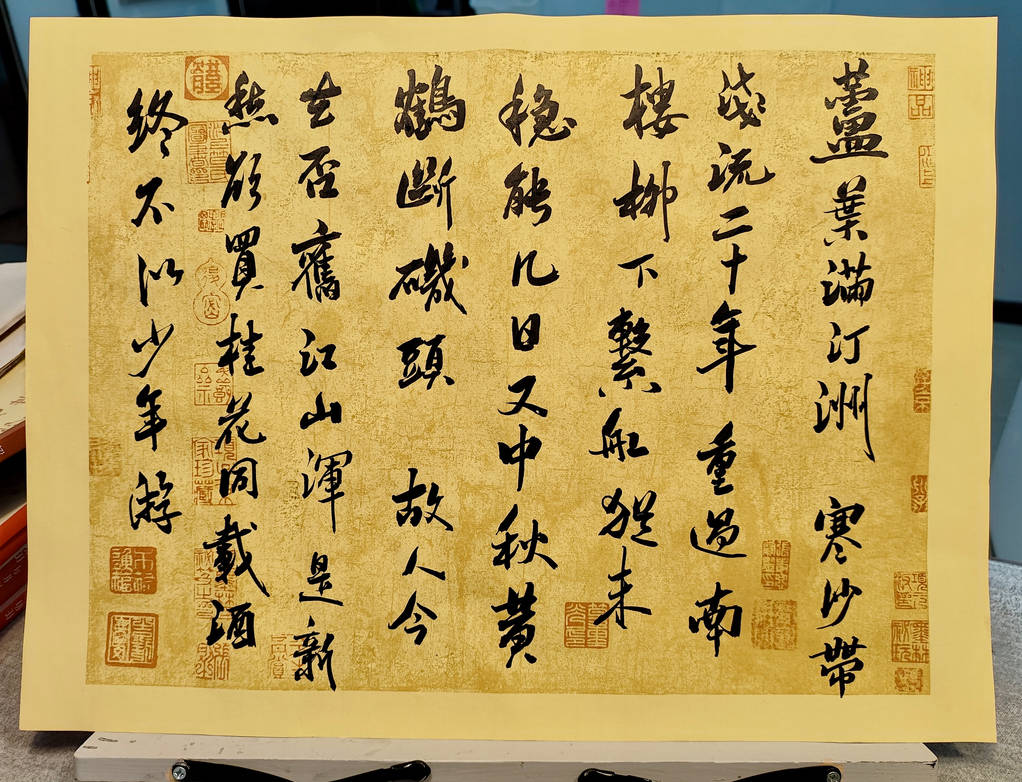 蘆葉滿汀洲寒沙帶
淺流二十年重過南
樓柳下繫舡猶未
穩能几日又中秋黃
鶴斷磯頭故人今
在否舊江山渾是新
愁欲買桂花同載酒
終不似少年游
神品